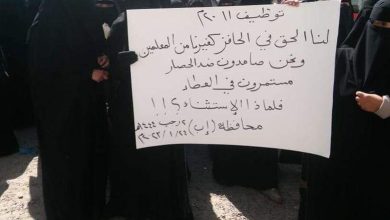 توظيف ٢٠١١م
لنا الحق في الحافز كغيرنا من المعلمين
ونحن صامدون ضد الحصار
مستمرون في العطاء
فلماذا الإستثناء؟!!
محافظة (إب) ٢ رجب ١٤٤٤هـ
٢٠٢٣/١/٢٤م